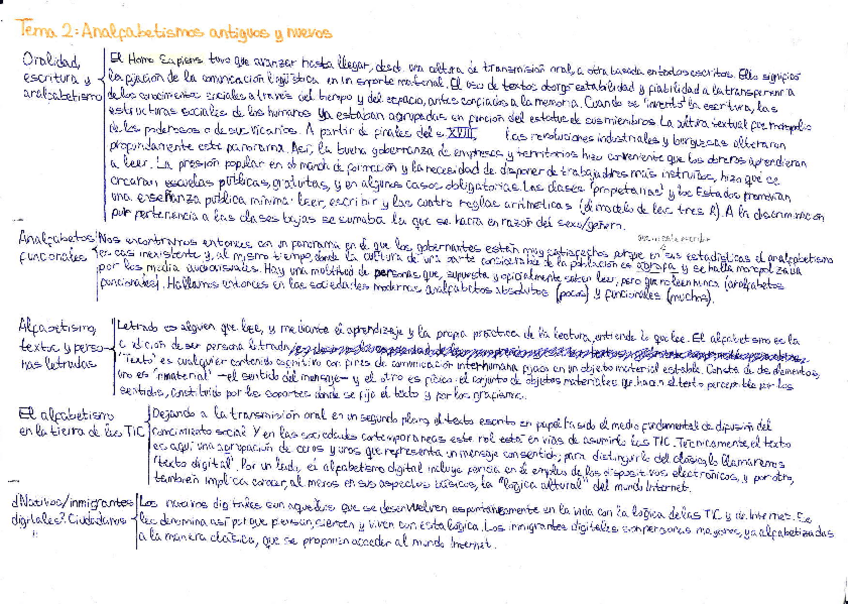 Tema 2: Analfabetismos antiguos y nuevos
Oralidad, escritura y analfabetismo
El Homo Sapiens tuvo que avanzar hasta llegar, desde una cultura de transmisión oral, a otra basada en textos escritos. Ello significó
la fijación de la comunicación lingüística en un soporte material. El uso de textos otorgó estabilidad y fiabilidad a la transferencia
de los conocimientos sociales a través del tiempo y del espacio, antes confiados a la memoria. Cuando se "inventó" la escritura, las
estructuras sociales de los humanos ya estaban agrupadas en función del estatus de sus miembros. La cultura textual fue monopolio
de los poderosos o de sus vicarios. A partir de finales del s. XVIII, las revoluciones industriales y burguesas alteraron
profundamente este panorama. Así, la buena gobernanza de empresas y territorios hizo conveniente que los obreros aprendieran
a leer. La presión popular en demanda de formación y la necesidad de disponer de trabajadores más instruidos, hizo que se
crearan escuelas públicas, gratuitas, y en algunos casos obligatorias. Las clases "propietarias" y los Estados promovían
una enseñanza pública mínima: leer, escribir y las cuatro reglas aritméticas (el modelo de las tres R). A la discriminación
por pertenencia a las clases bajas se sumaba la que se hacía en razón del sexo/género.
Analfabetos funcionales
Nos encontramos entonces con un panorama en el que los gobernantes están muy satisfechos porque en sus estadísticas el analfabetismo
es casi inexistente y, al mismo tiempo, donde la cultura de una parte considerable de la población es ágrafa, y se halla monopolizada
por los media audiovisuales. Hay una multitud de personas que, supuesta y oficialmente saben leer, pero que no leen nunca (analfabetos
funcionales). Hallamos entonces en las sociedades modernas analfabetos absolutos (pocos) y funcionales (muchos).
Alfabetismo, textos y personas letradas
Letrado es alguien que lee, y mediante el aprendizaje y la propia práctica de la lectura, entiende lo que lee. El alfabetismo es la
condición de ser persona letrada
"Texto" es cualquier contenido escrito con fines de comunicación interhumana fijado en un objeto material estable. Consta de dos elementos,
uno es "inmaterial" -el sentido del mensaje- y el otro es físico: el conjunto de objetos materiales que hacen el texto perceptible por los
sentidos, constituido por los soportes donde se fija el texto y por los grafismos.
El alfabetismo en la tierra de las TIC
Dejando a la transmisión oral en un segundo plano, el texto escrito en papel ha sido el medio fundamental de difusión del
conocimiento social. Y en las sociedades contemporáneas este rol está en vías de asumirlo las TIC. Técnicamente, el texto
es aquí una agrupación de ceros y unos que representa un mensaje con sentido; para distinguirlo del clásico, lo llamaremos
"texto digital". Por un lado, el alfabetismo digital incluye pericia en el empleo de los dispositivos electrónicos, y por otro,
también implica conocer, al menos en sus aspectos básicos, la "lógica cultural" del mundo Internet.
¿Nativos/inmigrantes digitales? Ciudadanos
Los nativos digitales son aquellos que se desenvuelven espontáneamente en la vida con la lógica de las TIC y de Internet. Se
les denomina así porque piensan, sienten y viven con esta lógica. Los inmigrantes digitales son personas mayores, ya alfabetizadas
a la manera clásica, que se proponen acceder al mundo Internet.